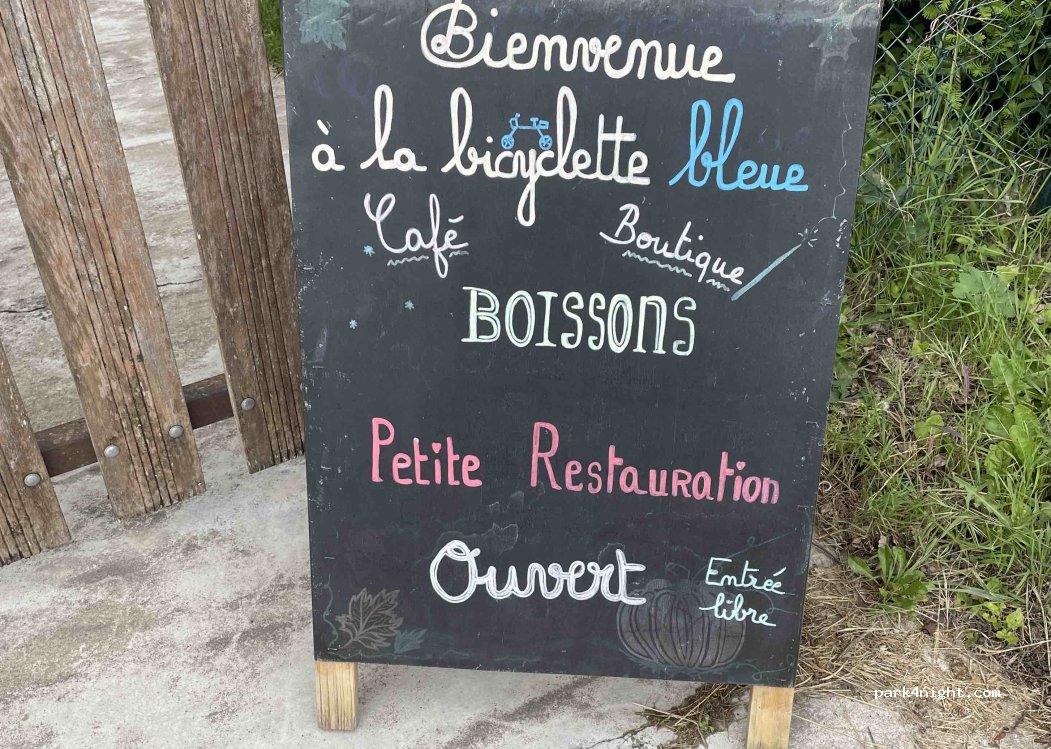 Bienvenue
à la bicyclette bleue
Café Boutique
BOISSONS
Petite Restauration
Ouvert
Entrée
libre
park4night.com